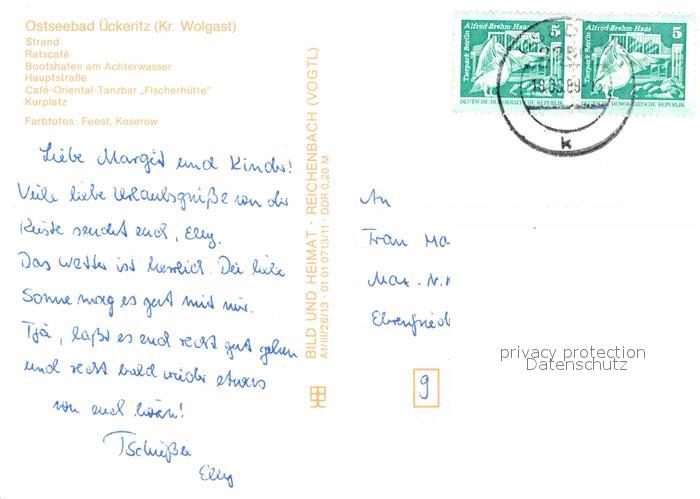 Ostseebad Ückeritz (Kr. Wolgast)
Strand
Ratscafé
Bootshafen am Achterwasser
Hauptstraße
Café-Oriental-Tanzbar „Fischerhütte"
Kurplatz
Farbfotos: Feest, Koserow
Liebe Margit und Kinder!
Viele liebe Urlaubsgrüße von der
Küste sendet euch, Elly.
Das Wetter ist herrlich. Die liebe
Sonne mag es gut mit mir.
Tja, laßt es euch recht gut gehen
und recht bald wieder etwas
von euch hören!
Tschüßle
Elly
BILD UND HEIMAT · REICHENBACH (VOGTL)
A1/III/26/13 · 01 01 0713/11 · DDR 0,20 M
Alfred-Brehm-Haus 5
Tierpark Berlin
DEUTSCHE DEMOKRATISCHE REPUBLIK
Alfred-Brehm-Haus 5
Tierpark Berlin
DEUTSCHE DEMOKRATISCHE REPUBLIK
k
An
Frau Ma
Max-
Ehrenfried
9
privacy protection
Datenschutz